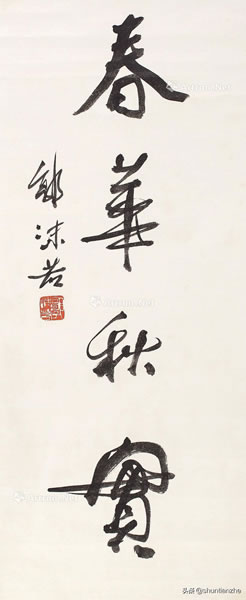 春華秋實
郭沫若
头条 @shuntianzhe